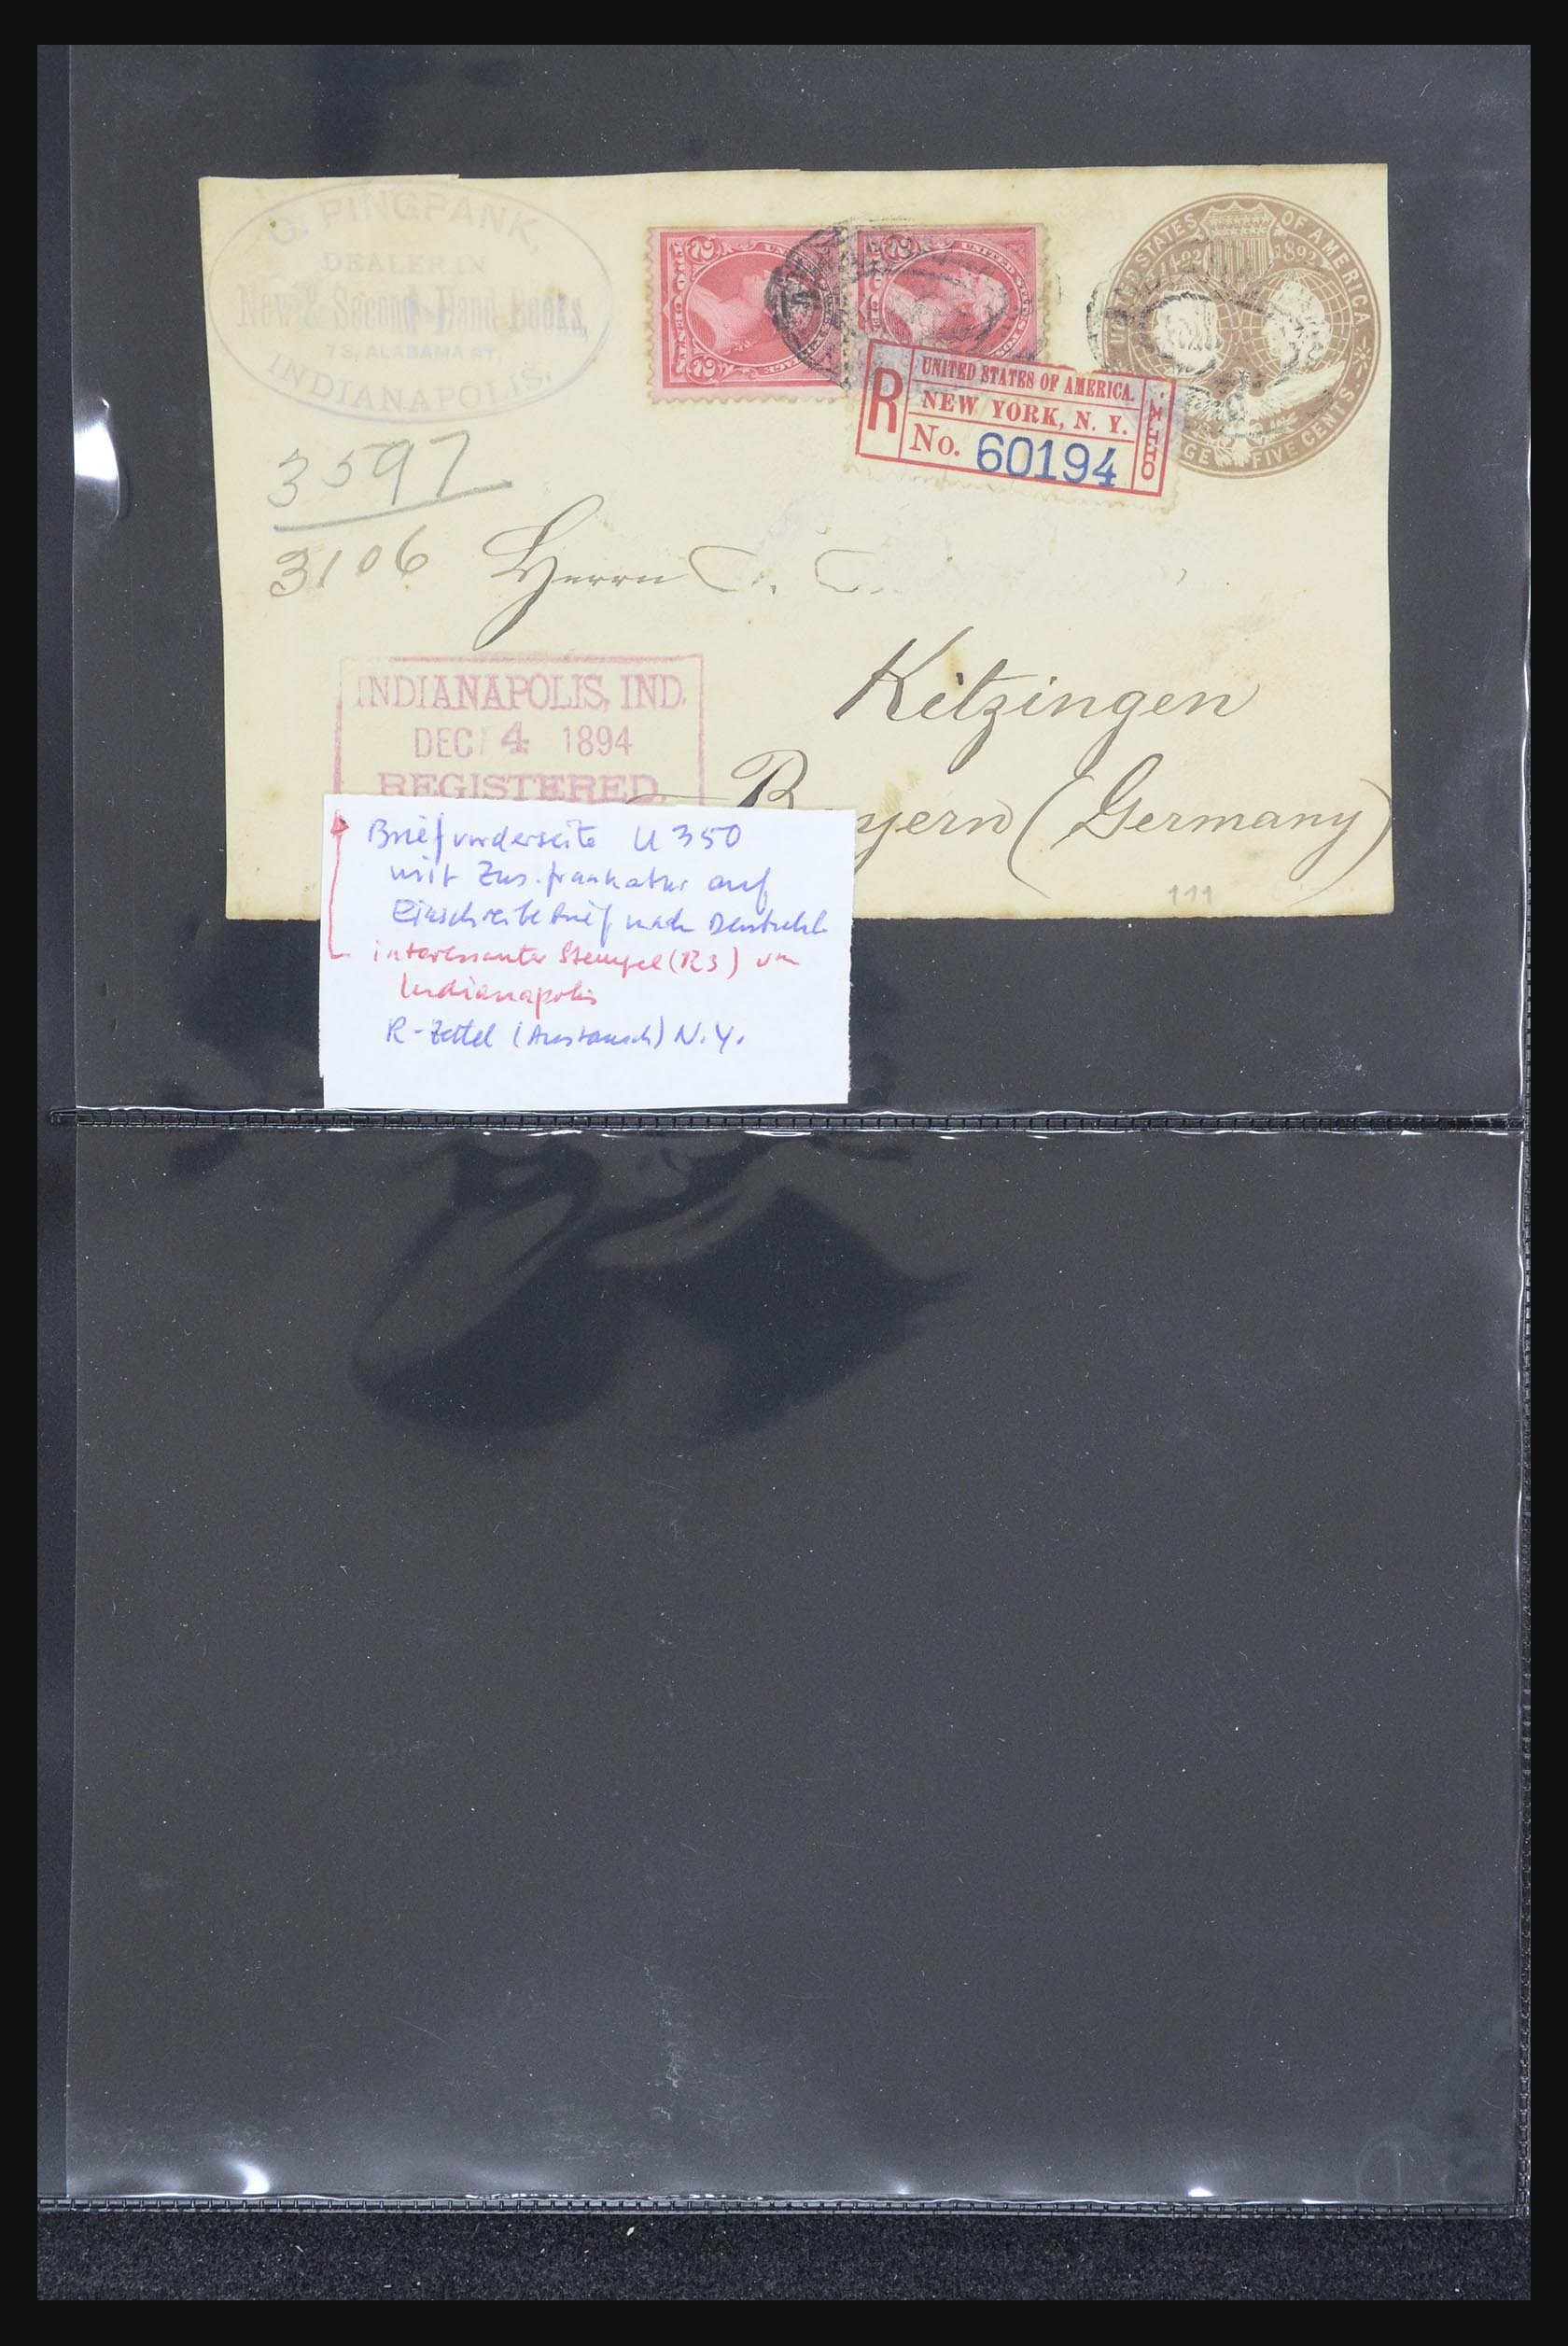 O. PINGPANK,
DEALER IN
New & Second-Hand Books,
78, ALABAMA ST,
INDIANAPOLIS.
UNITED STATES OF AMERICA
1492 1892
FIVE CENTS
R
UNITED STATES OF AMERICA.
NEW YORK, N. Y.
No. 60194
3597
3106
Herrn
Kitzingen
Bayern (Germany)
INDIANAPOLIS, IND.
DEC 4 1894
REGISTERED.
111
Briefvorderseite U 350
mit Zus.frankatur auf
Einschreibebrief nach Deutschl.
interessanter Stempel (R3) von
Indianapolis
R-Zettel (Austausch) N.Y.